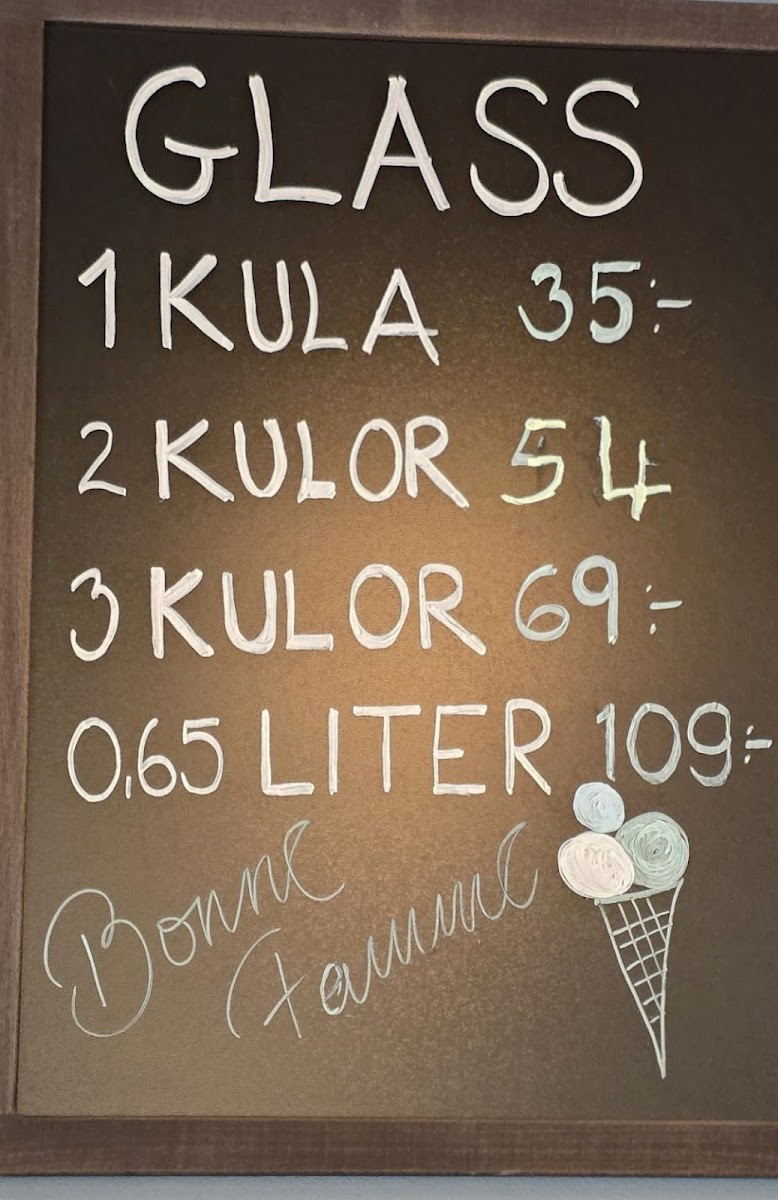 GLASS
1 KULA 35:-
2 KULOR 54
3 KULOR 69:-
0,65 LITER 109:-
Bonne
Famme